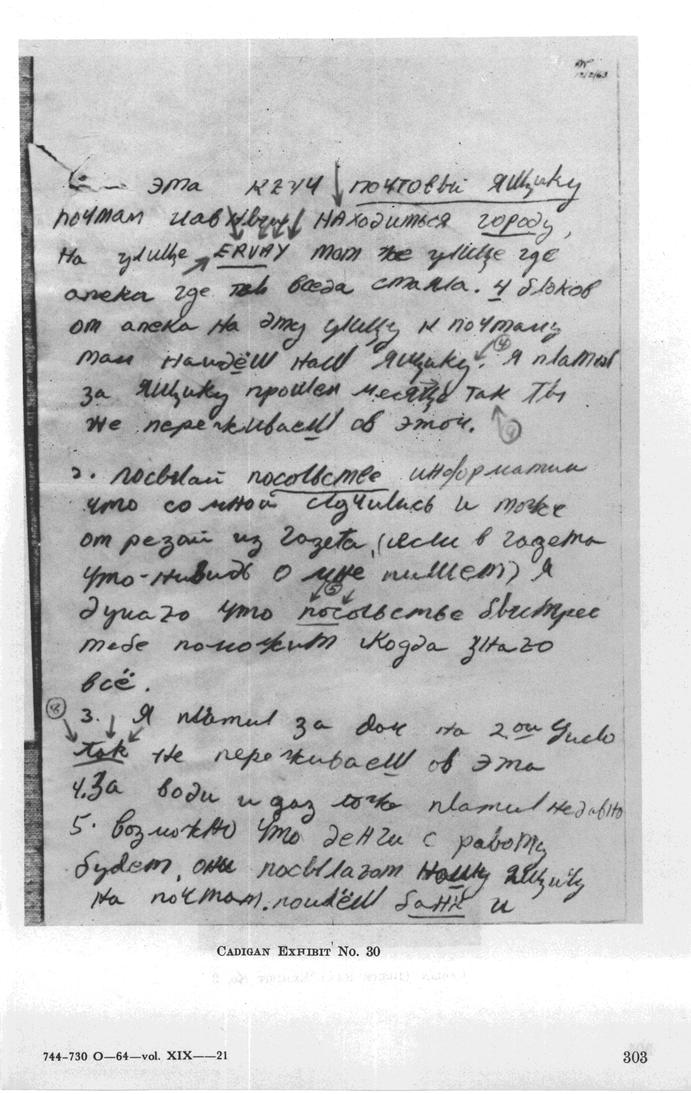 эта ключ почтовый ящику
почтам главнвич находиться городу,
На улице ERVAY той же улице где
апека где ты вседа стаяла. 4 блоков
от апека на эту улицу к почтаму
там найдёш наш ящику. я платил
за ящику прошлеи месяце так ты
не переживаеш об этом.
2. посылай посольстве информатии
что со мной случилась и тоже
отрезай из газета, (если в газета
что-нибудь о мне пишет) я
думаю что посольстве быстрее
тебе поможит когда знаю
всё.
3. я платил за дом на 2ои число
так не переживаеш об эта
4. За води и газ тоже платил недавно
5. возможно что денги с работу
будет, они посылают нашу ящику
на почтам. поидёш банк и
CADIGAN EXHIBIT No. 30
744-730 O—64—vol. XIX——21
303